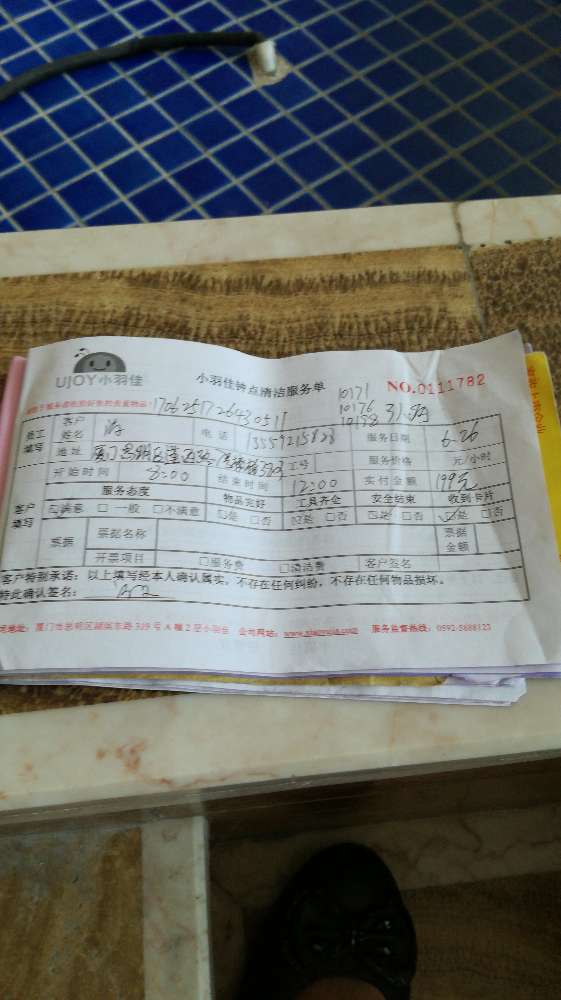 UJOY小羽佳 小羽佳钟点清洁服务单 NO.0111782
10171
10176
10158
170625172640511
员工填写 客户姓名 电话 13559215828 服务日期 6.26
地址 工号 服务价格 元/小时
开始时间 8:00 结束时间 12:00 实付金额 199元
客户填写 服务态度 物品完好 工具齐全 安全结束 收到卡片
☑满意 □一般 □不满意 ☑是 □否 ☑是 □否 ☑是 □否 ☑是 □否
票据 票据名称 票据金额
开票项目 □服务费 □清洁费 客户签名
客户特别承诺:以上填写经本人确认属实,不存在任何纠纷,不存在任何物品损坏。
特此确认签名:
地址:厦门市思明区湖滨东路319号A幢2层小羽佳 公司网站: 服务监督热线:0592-5888123